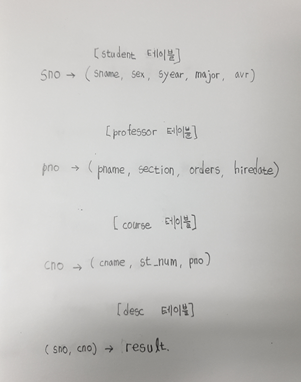 [student 테이블]
sno → (sname, sex, syear, major, avr)
[professor 테이블]
pno → (pname, section, orders, hiredate)
[course 테이블]
cno → (cname, st_num, pno)
[desc 테이블]
(sno, cno) → result.